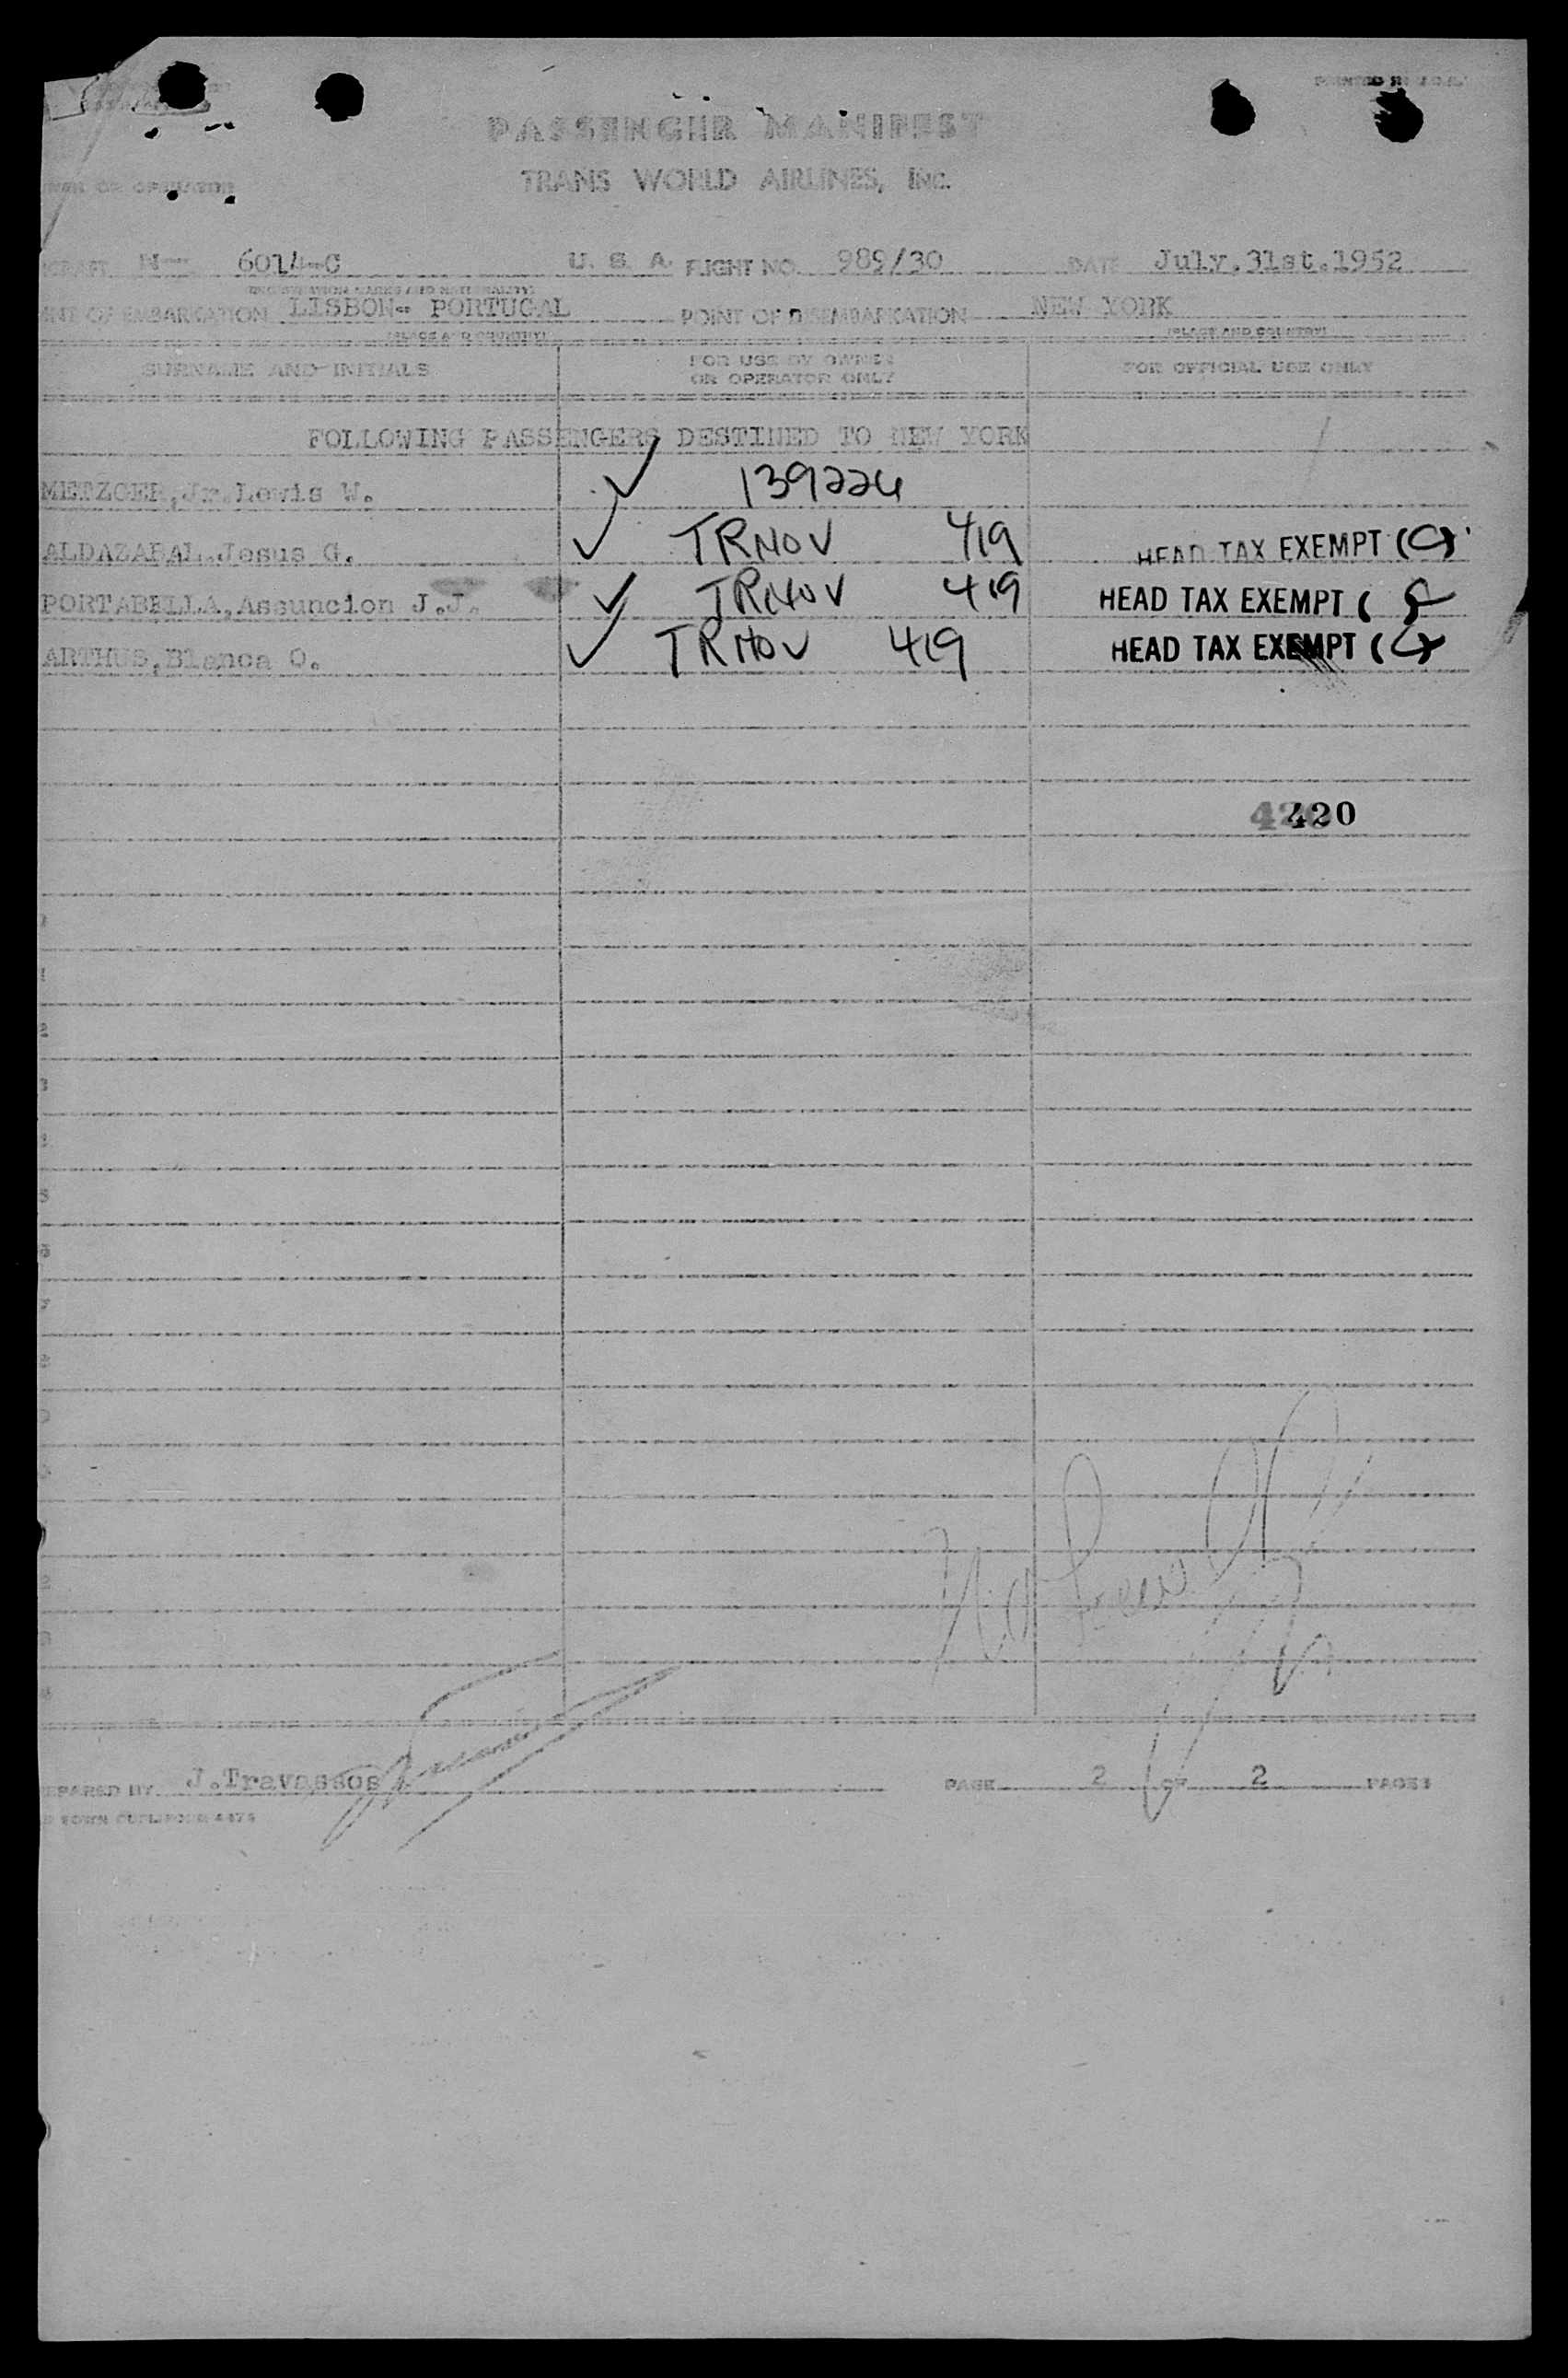 PASSENGER MANIFEST
TRANS WORLD AIRLINES, INC.
OR OPERATOR
N- 6014-C U. S. A. FLIGHT NO. 989/30 DATE July,31st.1952
OF EMBARKATION LISBON- PORTUGAL POINT OF DISEMBARKATION NEW YORK
(PLACE AND COUNTRY) (PLACE AND COUNTRY)
SURNAME AND INITIALS FOR USE BY OWNER OR OPERATOR ONLY FOR OFFICIAL USE ONLY
FOLLOWING PASSENGERS DESTINED TO NEW YORK
METZGER,Jr.Lewis W. ✓ 139224
ALDAZABAL.Jesus G. ✓ TRMOV 419 HEAD TAX EXEMPT (C)
PORTABELLA,Assuncion J.J. ✓ TRMOV 419 HEAD TAX EXEMPT (
ARTHUS,Blanca O. ✓ TRMOV 419 HEAD TAX EXEMPT (C)
420
PREPARED BY J.Travassos PAGE 2 OF 2 PAGES